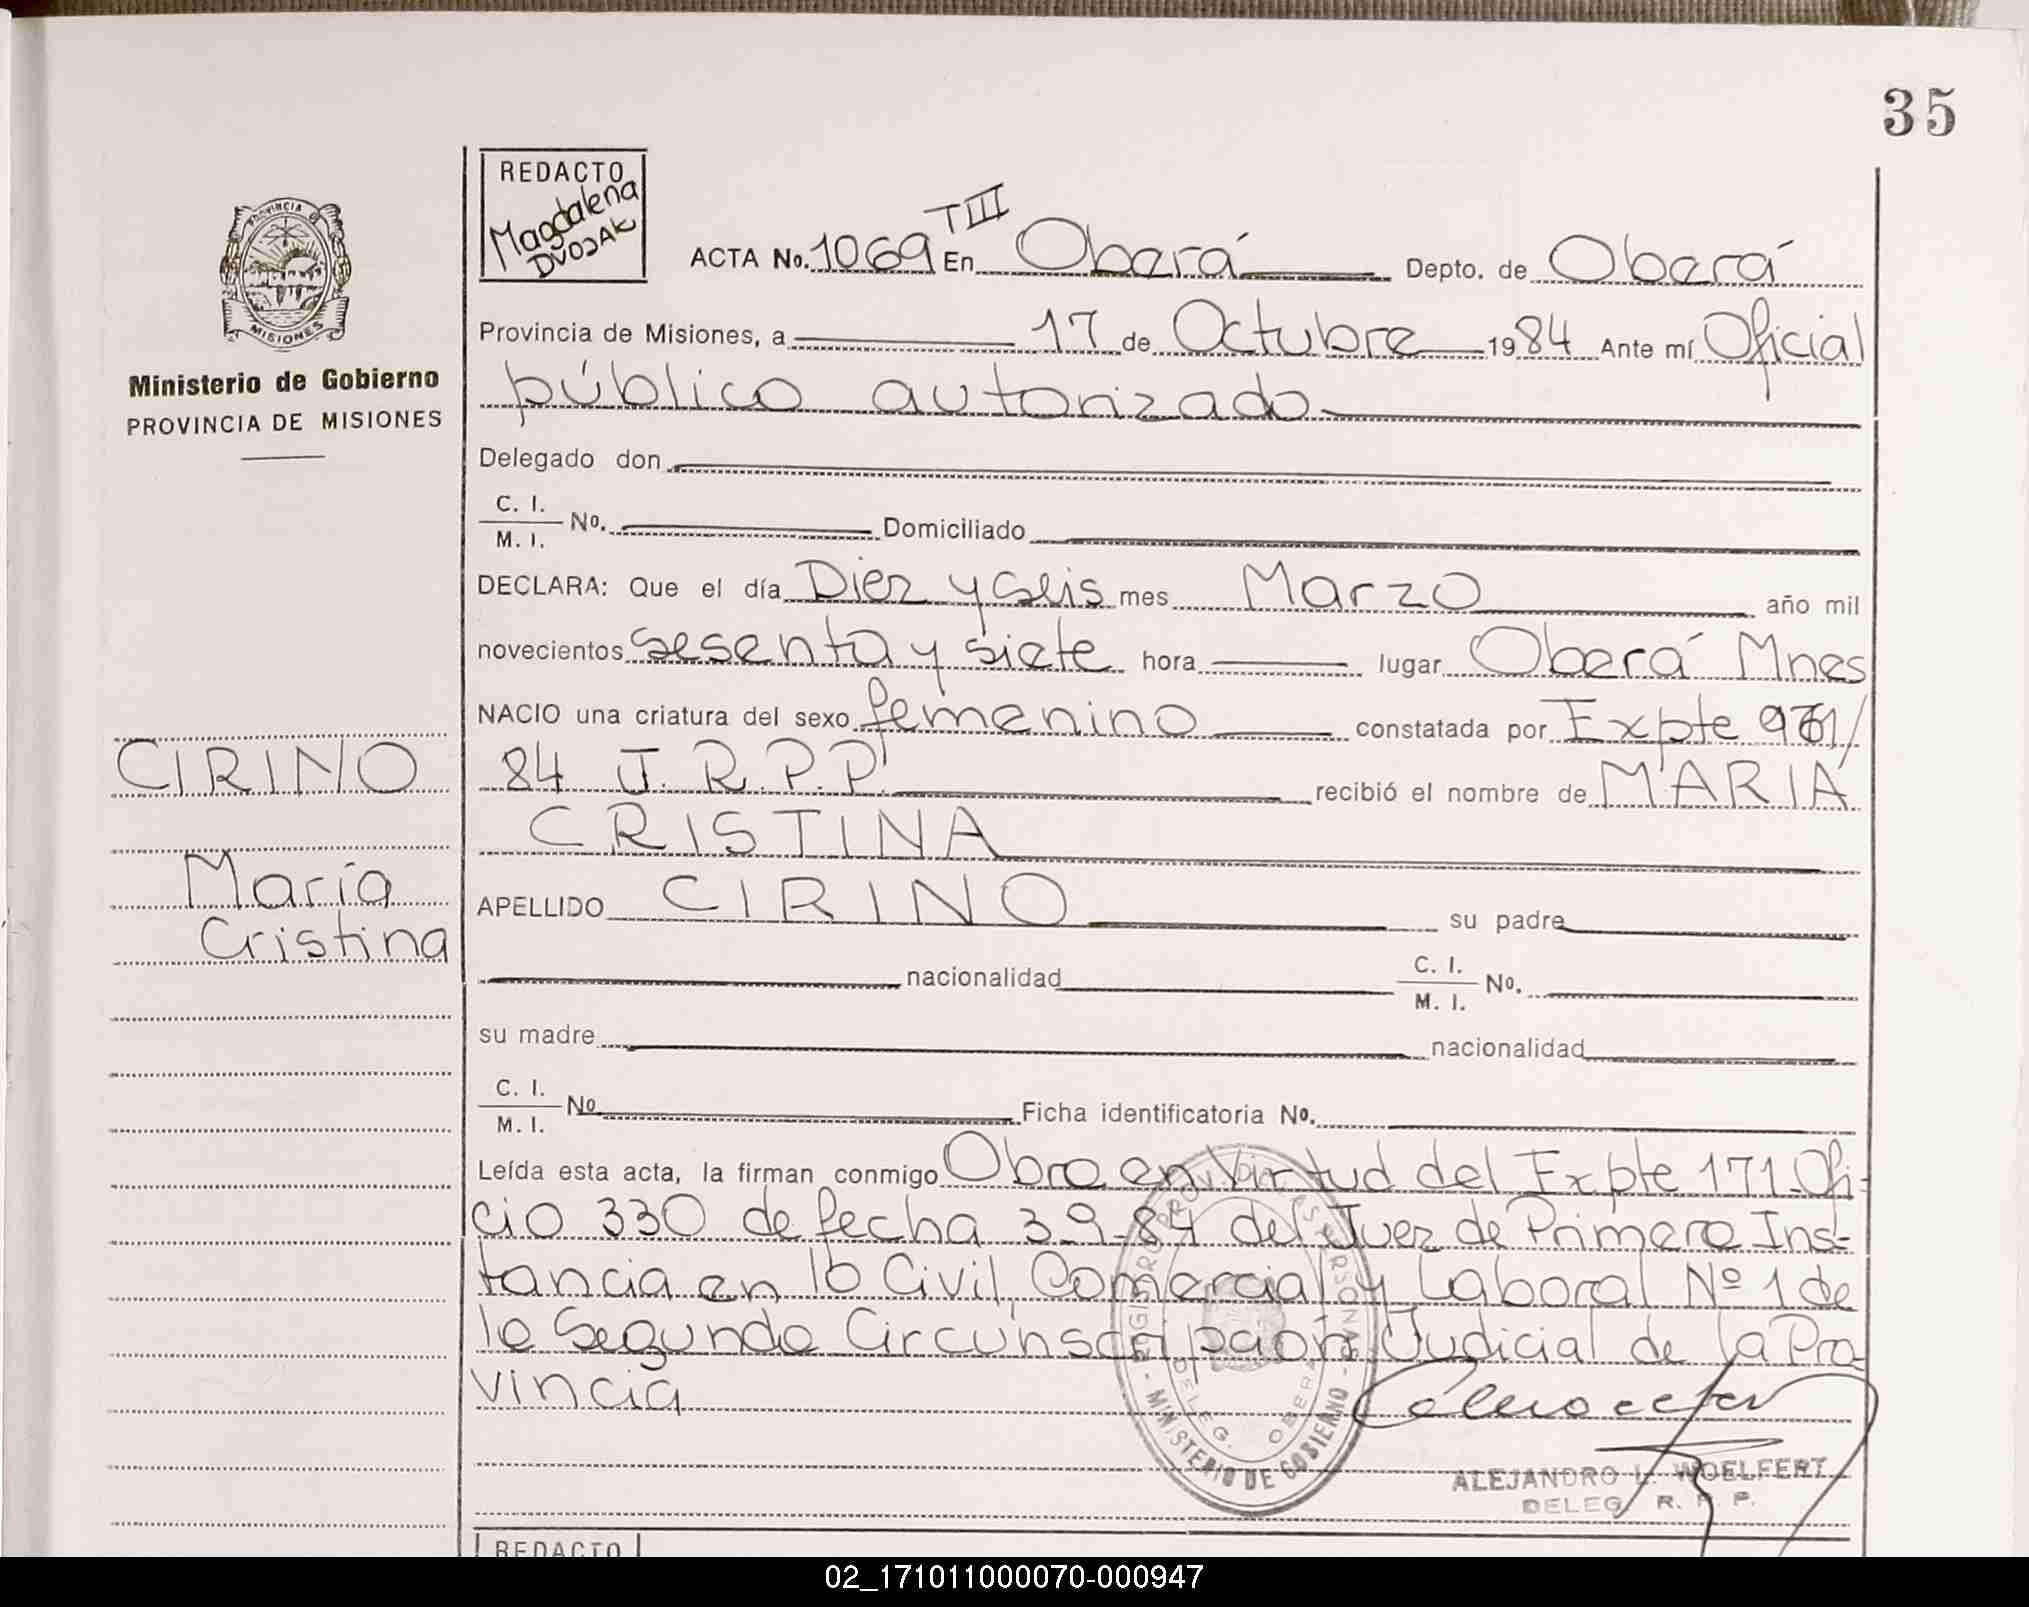 35
REDACTO
Magdalena
DVOJAK
PROVINCIA D
MISIONES
Ministerio de Gobierno
PROVINCIA DE MISIONES
CIRINO
María
Cristina
ACTA No. 1069 TIII En Oberá Depto. de Oberá
Provincia de Misiones, a 17 de Octubre 1984 Ante mí Oficial
público autorizado
Delegado don
C. I.
M. I. No. Domiciliado
DECLARA: Que el día Diez y seis mes Marzo año mil
novecientos sesenta y siete hora lugar Oberá Mnes
NACIO una criatura del sexo femenino constatada por Expte 961/
84 J.R.P.P. recibió el nombre de MARIA
CRISTINA
APELLIDO CIRINO su padre
nacionalidad C. I.
M. I. No.
su madre nacionalidad
C. I.
M. I. No Ficha identificatoria No.
Leída esta acta, la firman conmigo Obra en Virtud del Expte 171-Ofi-
cio 330 de fecha 3-9-84 del Juez de Primera Ins-
tancia en lo Civil, Comercial y Laboral Nº 1 de
la Segunda Circunscripción Judicial de la Pro-
vincia
MINISTERIO DE GOBIERNO
DELEG. OBERA
ALEJANDRO L. WOELFERT
DELEG. R. P. P.
REDACTO
02_171011000070-000947